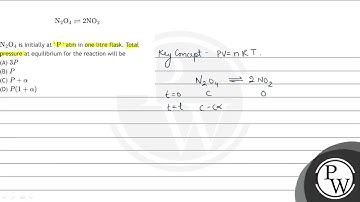 N₂O₄ ⇌ 2NO₂
N₂O₄ is initially at "P" atm in one litre flask. Total
pressure at equilibrium for the reaction will be
(A) 3P
(B) P
(C) P + α
(D) P(1 + α)
Key Concept - PV = nRT.
N₂O₄ ⇌ 2NO₂
t=0 C O
t=t C-Cα
PW